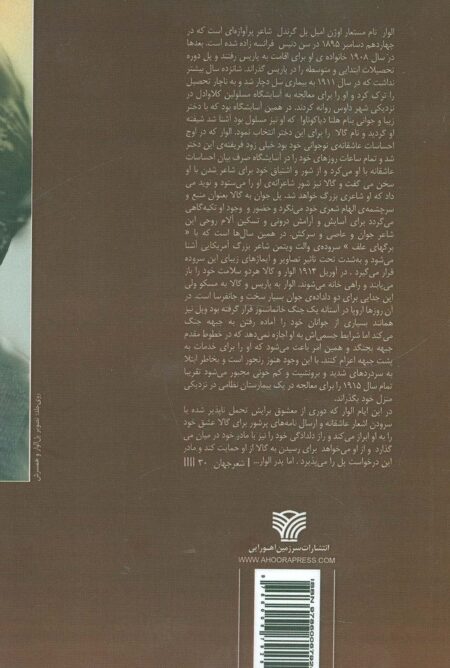 الوار نام مستعار اوژن امیل پل گرندل شاعر پرآوازه‌ای است که در
چهاردهم دسامبر ۱۸۹۵ در سن دنیس فرانسه زاده شده است. بعدها
در سال ۱۹۰۸ خانواده ی او برای اقامت به پاریس رفتند و پل دوره
تحصیلات ابتدایی و متوسطه را در پاریس گذراند. شانزده سال بیشتر
نداشت که در سال ۱۹۱۱ به بیماری سل دچار شد و به ناچار تحصیل
را ترک کرد و او را برای معالجه به آسایشگاه مسلولین کلاوادل در
نزدیکی شهر داوس روانه کردند. در همین آسایشگاه بود که با دختر
زیبا و جوانی بنام هلنا دیاکوناوا که او نیز مسلول بود آشنا شد شیفته
او گردید و نام گالا را برای این دختر انتخاب نمود. الوار که در اوج
احساسات عاشقانه‌ی نوجوانی خود بود خیلی زود فریفته‌ی این دختر
شد و تمام ساعات روزهای خود را در آسایشگاه صرف بیان احساسات
عاشقانه با او می‌کرد و از شور و اشتیاق خود برای شاعر شدن با او
سخن می گفت و گالا نیز شور شاعرانه‌ی او را می‌ستود و نوید می
داد که او شاعری بزرگ خواهد شد. پل جوان به گالا بعنوان منبع و
سرچشمه‌ی الهام شعری خود می‌نگرد و حضور و وجود او تکیه‌گاهی
می‌گردد برای آسایش و آرامش درونی و تسکین آلام روحی این
شاعر جوان و عاصی و سرکش. در همین سال‌ها است که با «
برگهای علف » سروده‌ی والت ویتمن شاعر بزرگ آمریکایی آشنا
می‌شود و به‌شدت تحت تاثیر تصاویر و ایماژهای زیبای این سروده
قرار می‌گیرد . در آوریل ۱۹۱۴ الوار و گالا هردو سلامت خود را باز
می‌یابند و راهی خانه می‌شوند. الوار به پاریس و گالا به مسکو ولی
این جدایی برای دو دلداده‌ی جوان بسیار سخت و جانفرسا است. در
آن روزها اروپا در آستانه یک جنگ خانمانسوز قرار گرفته بود وپل نیز
همانند بسیاری از جوانان خود را آماده رفتن به جبهه جنگ
می‌کند اما شرایط جسمی‌اش به او اجازه نمی‌دهد که در خطوط مقدم
جبهه بجنگد و همین امر باعث می‌شود که او را برای خدمات به
پشت جبهه اعزام کنند. با این وجود هنوز رنجور است و بخاطر ابتلا
به سردردهای شدید و برونشیت و کم خونی مجبور می‌شود تقریبا
تمام سال ۱۹۱۵ را برای معالجه در یک بیمارستان نظامی در نزدیکی
منزل خود بگذراند.
در این ایام الوار که دوری از معشوق برایش تحمل ناپذیر شده با
سرودن اشعار عاشقانه و ارسال نامه‌های پرشور برای گالا عشق خود
را به او ابراز می‌کند و راز دلدادگی خود را نیز با مادر خود در میان می
گذارد و از او می‌خواهد برای رسیدن به گالا از او حمایت کند و مادر
این درخواست پل را می‌پذیرد . اما پدر الوار... | شعر جهان ۳۰ ||||
روی جلد: تصویر پل الوار و همسرش
انتشارات سرزمین اهورایی
WWW.AHOORAPRESS.COM